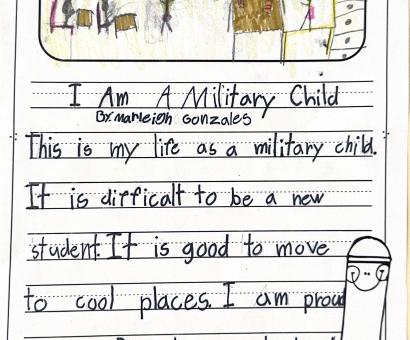 I Am A Military Child
By: Marleigh Gonzales
This is my life as a military child.
It is difficalt to be a new
student. It is good to move
to cool places. I am proud